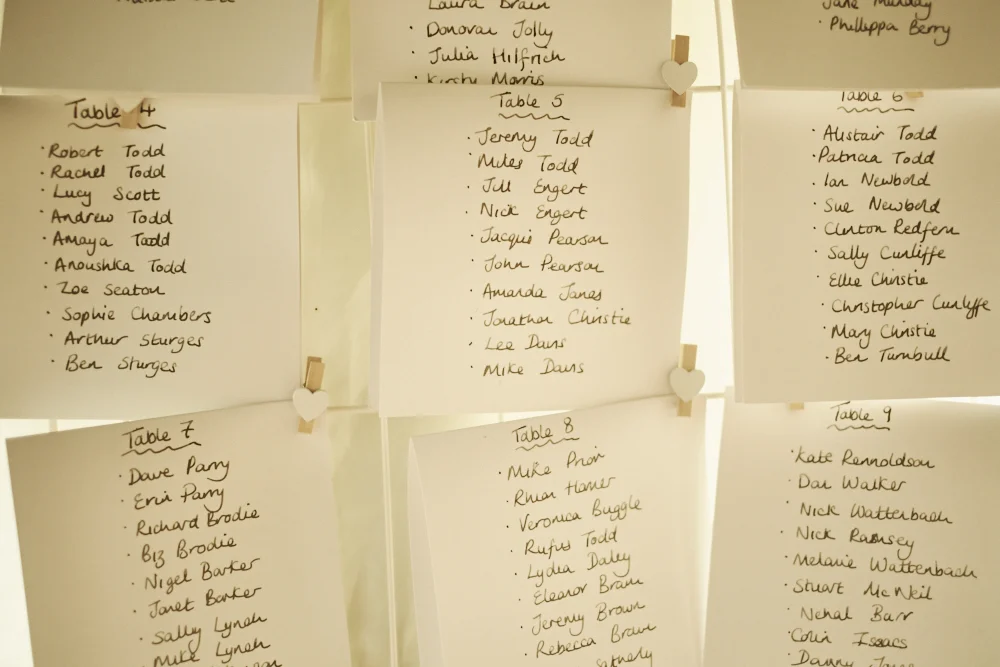 Laura Brain
· Donovan Jolly
· Julia Hilfrich
· Kirsty Morris
Jane Munday
· Phillippa Berry
Table 4
· Robert Todd
· Rachel Todd
· Lucy Scott
· Andrew Todd
· Amaya Todd
· Anoushka Todd
· Zoe Seaton
· Sophie Chambers
· Arthur Sturges
· Ben Sturges
Table 5
· Jeremy Todd
· Miles Todd
· Jill Engert
· Nick Engert
· Jacqui Pearson
· John Pearson
· Amanda Jones
· Jonathan Christie
· Lee Davis
· Mike Davis
Table 6
· Alistair Todd
· Patricia Todd
· Ian Newbold
· Sue Newbold
· Clinton Redfern
· Sally Cunliffe
· Ellie Christie
· Christopher Cunliffe
· Mary Christie
· Ben Turnbull
Table 7
· Dave Parry
· Erin Parry
· Richard Brodie
· Biz Brodie
· Nigel Barker
· Janet Barker
· Sally Lynah
· Mike Lynah
Table 8
· Mike Prior
· Rhian Horner
· Veronica Buggle
· Rufus Todd
· Lydia Daley
· Eleanor Brain
· Jeremy Brown
· Rebecca Brain
Table 9
· Kate Rennoldson
· Dan Walker
· Nick Wattenbach
· Nick Ramsey
· Melanie Wattenbach
· Stuart McNeil
· Nehal Barr
· Colin Isaacs
· Danny